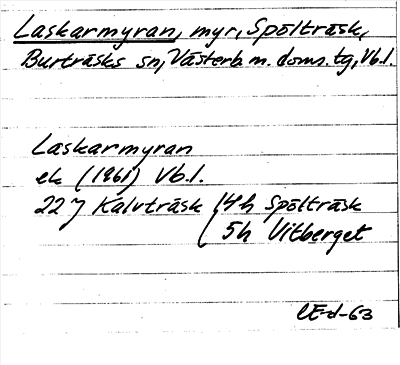 Laskarmyran, myr, Spölträsk,
Burträsks sn, Västerb. m. doms. tg, Vb. l.
Laskarmyran
ek (1961) Vb. l.
22 J Kalvträsk 4h Spölträsk
5h Vitberget
CE-d-63